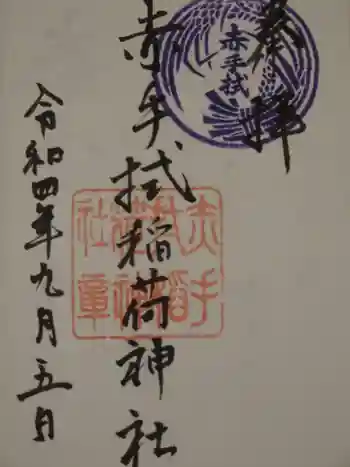 奉拝
赤手拭
赤手拭稲荷神社
赤手拭稲荷神社章
令和四年九月五日